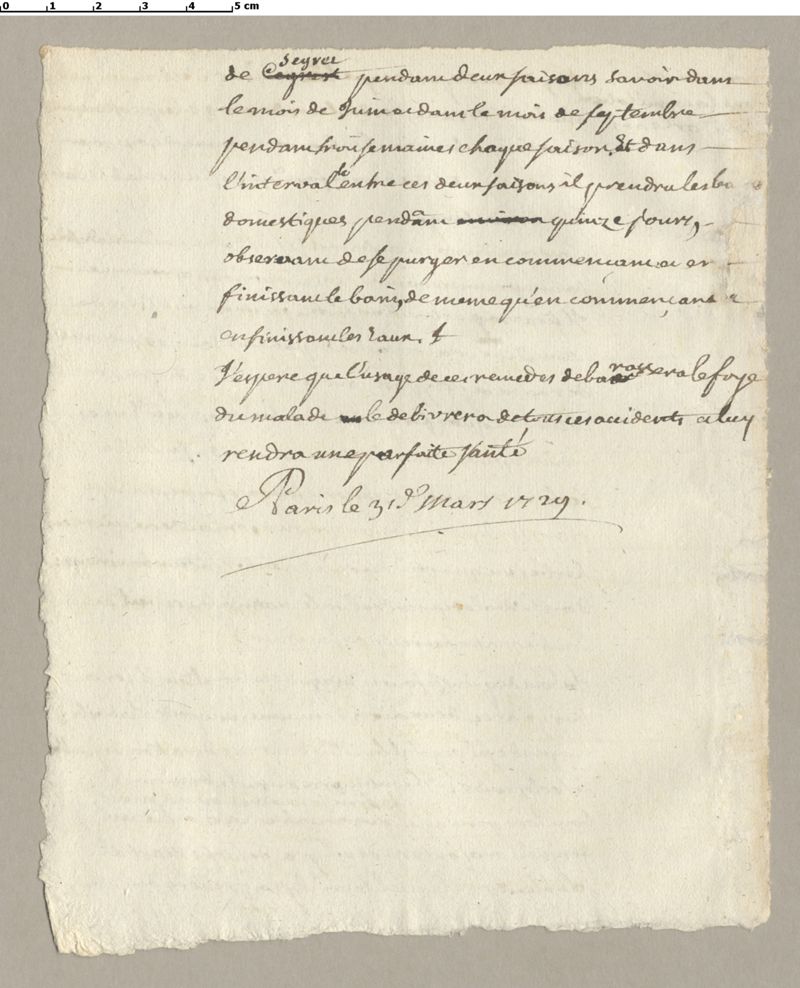 0 1 2 3 4 5 cm
segrec
de pendant deux saisons savoir dans
le mois de Juin et dans le mois de septembre
pendant trois semaines chaque saison, Et dans
l'intervalle entre ces deux saisons il prendra les ba
domestiques pendant environ quinze jours,
observant de se purger en commençant et en
finissant le bain, de meme qu'en commençant e
en finissant les Eaux.
J'espere que l'usage de ces remedes debarassera le foye
du malade le delivrera de tous ces accidents et luy
rendra une parfaite santé
A Paris le 31e Mars 1729.